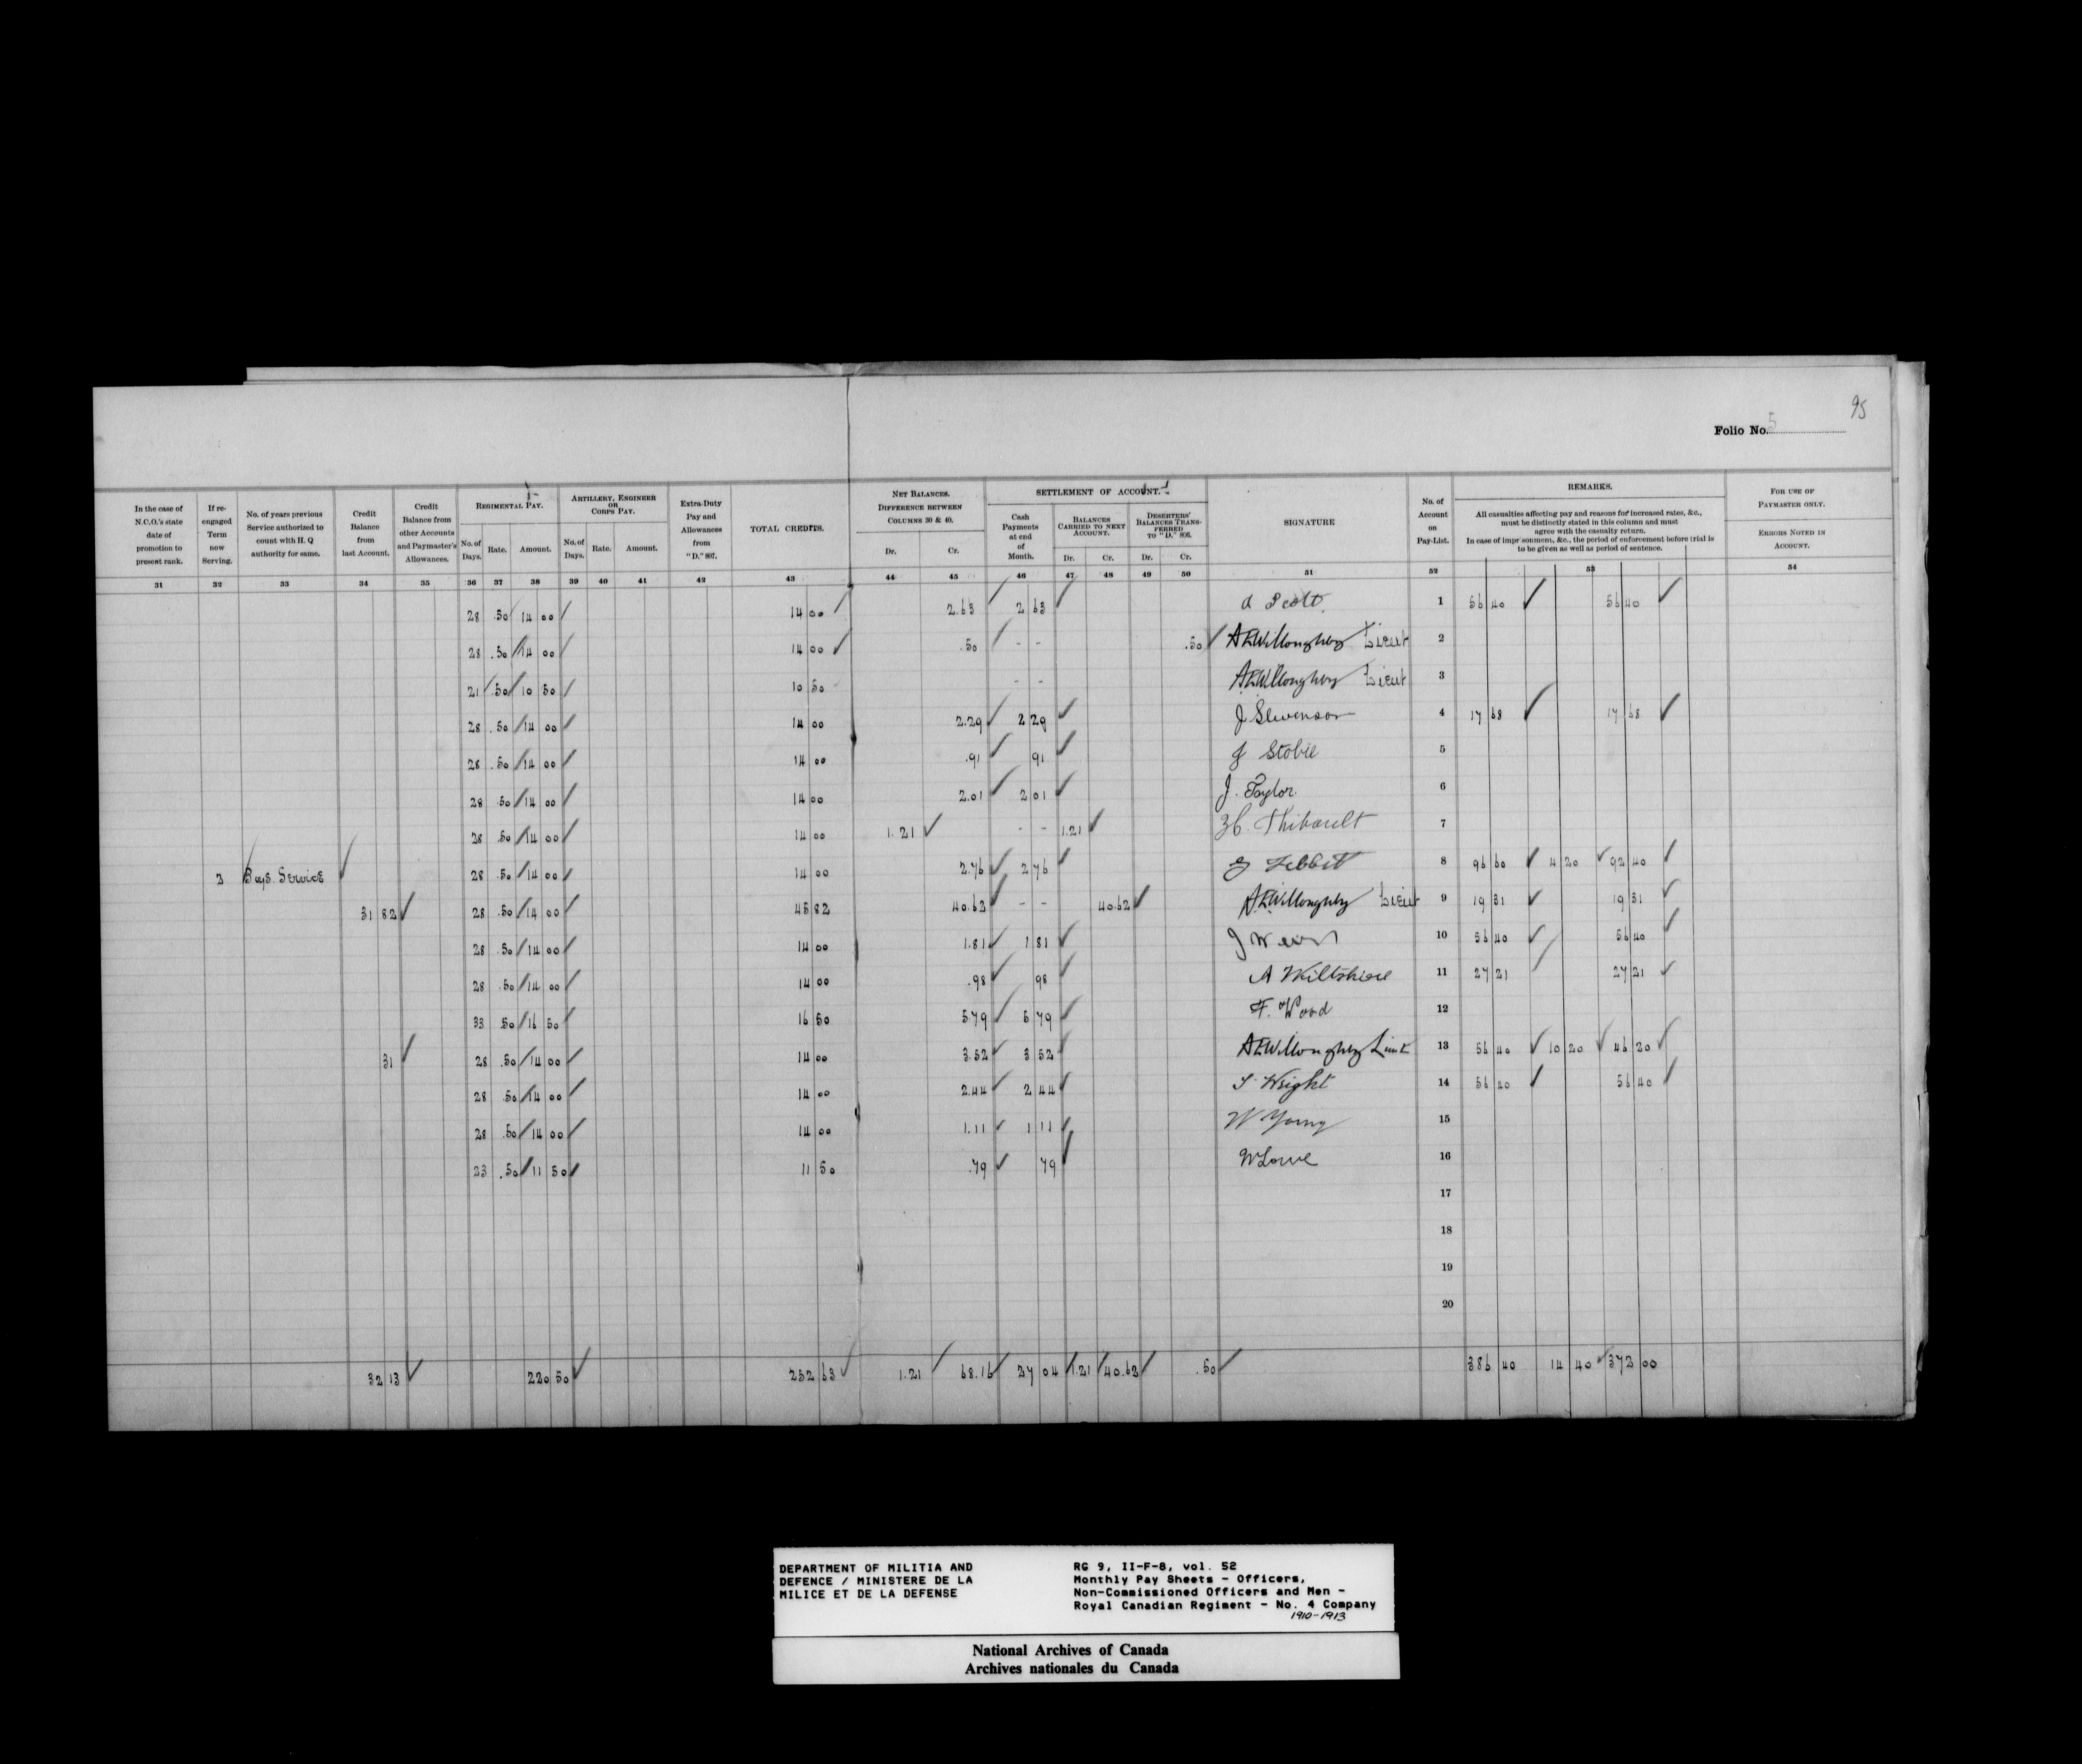 95
Folio No. 5
In the case of N.C.O.'s state date of promotion to present rank. | If re-engaged Term now Serving. | No. of years previous Service authorized to count with H. Q authority for same. | Credit Balance from last Account. | Credit Balance from other Accounts and Paymaster's Allowances. | REGIMENTAL PAY. No. of Days. Rate. Amount. | ARTILLERY, ENGINEER OR CORPS PAY. No. of Days. Rate. Amount. | Extra-Duty Pay and Allowances from "D." 807. | TOTAL CREDITS. | NET BALANCES. DIFFERENCE BETWEEN COLUMNS 30 & 40. Dr. Cr. | SETTLEMENT OF ACCOUNT. Cash Payments at end of Month. BALANCES CARRIED TO NEXT ACCOUNT. Dr. Cr. DESERTERS' BALANCES TRANSFERRED TO "D." 806. Dr. Cr. | SIGNATURE | No. of Account on Pay-List. | REMARKS. All casualties affecting pay and reasons for increased rates, &c., must be distinctly stated in this column and must agree with the casualty return. In case of imprisonment, &c., the period of enforcement before trial is to be given as well as period of sentence. | FOR USE OF PAYMASTER ONLY. ERRORS NOTED IN ACCOUNT.
31 32 33 34 35 36 37 38 39 40 41 42 43 44 45 46 47 48 49 50 51 52 53 54
28 .50 14 00 14 00 2.63 2 63 A Scott. 1 56 40 56 40
28 .50 14 00 14 00 .50 - - .50 AEWilloughby Lieut 2
21 .50 10 50 10 50 - - AEWilloughby Lieut 3
28 .50 14 00 14 00 2.29 2 29 J Stevenson 4 17 68 17 68
28 .50 14 00 14 00 .91 91 J Stobie 5
28 .50 14 00 14 00 2.01 2 01 J. Taylor. 6
28 .50 14 00 14 00 1.21 - - 1.21 Thibault 7
3 Boys. Service 28 .50 14 00 14 00 2.76 2 76 G Tebbit 8 96 60 4 20 92 40
31 82 28 .50 14 00 45 82 40.62 - - 40.62 AEWilloughby Lieut 9 19 31 19 31
28 .50 14 00 14 00 1.81 1 81 J Weir 10 56 40 56 40
28 .50 14 00 14 00 .98 98 A Wiltshire 11 27 21 27 21
33 .50 16 50 16 50 5.79 5 79 F. Wood 12
31 28 .50 14 00 14 00 3.52 3 52 AEWilloughby Lieut 13 56 40 10 20 46 20
28 .50 14 00 14 00 2.44 2 44 Wright 14 56 40 56 40
28 .50 14 00 14 00 1.11 1 11 W Young 15
23 .50 11 50 11 50 .79 79 W Lowe 16
17
18
19
20
32 13 220 50 252 63 1.21 68.16 27 04 1.21 40.62 .50 386 40 14 40 372 00
DEPARTMENT OF MILITIA AND
DEFENCE / MINISTERE DE LA
MILICE ET DE LA DEFENSE
RG 9, II-F-8, vol. 52
Monthly Pay Sheets - Officers,
Non-Commissioned Officers and Men -
Royal Canadian Regiment - No. 4 Company
1910-1913
National Archives of Canada
Archives nationales du Canada